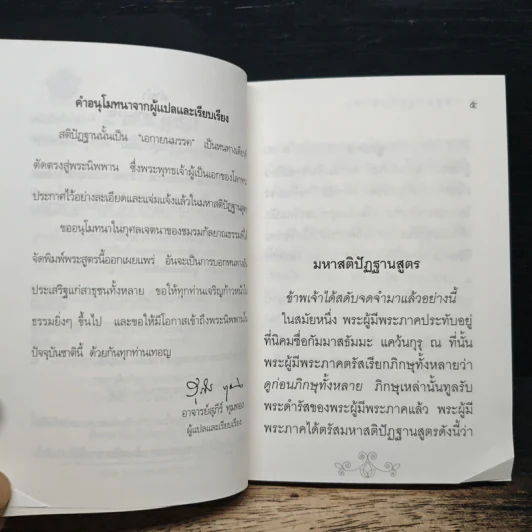 คำอนุโมทนาจากผู้แปลและเรียบเรียง
สติปัฏฐานนั้นเป็น "เอกายนมรรค" เป็นหนทางเดียวที่
ตัดตรงสู่พระนิพพาน ซึ่งพระพุทธเจ้าผู้เป็นเอกของโลก
ประกาศไว้อย่างละเอียดและแจ่มแจ้งแล้วในมหาสติปัฏฐานสูตร
ขออนุโมทนาในกุศลเจตนาของชมรมกัลยาณธรรมที่ได้
จัดพิมพ์พระสูตรนี้ออกเผยแพร่ อันจะเป็นการบอกหนทางอัน
ประเสริฐแก่สาธุชนทั้งหลาย ขอให้ทุกท่านเจริญก้าวหน้าใน
ธรรมยิ่งๆ ขึ้นไป และขอให้มีโอกาสเข้าถึงพระนิพพานใน
ปัจจุบันชาตินี้ ด้วยกันทุกท่านเทอญ
อาจารย์สุภีร์ ทุมทอง
ผู้แปลและเรียบเรียง
๕
มหาสติปัฏฐานสูตร
ข้าพเจ้าได้สดับจดจำมาแล้วอย่างนี้
ในสมัยหนึ่ง พระผู้มีพระภาคประทับอยู่
ที่นิคมชื่อกัมมาสธัมมะ แคว้นกุรุ ณ ที่นั้น
พระผู้มีพระภาคตรัสเรียกภิกษุทั้งหลายว่า
ดูก่อนภิกษุทั้งหลาย ภิกษุเหล่านั้นทูลรับ
พระดำรัสของพระผู้มีพระภาคแล้ว พระผู้มี
พระภาคได้ตรัสมหาสติปัฏฐานสูตรดังนี้ว่า